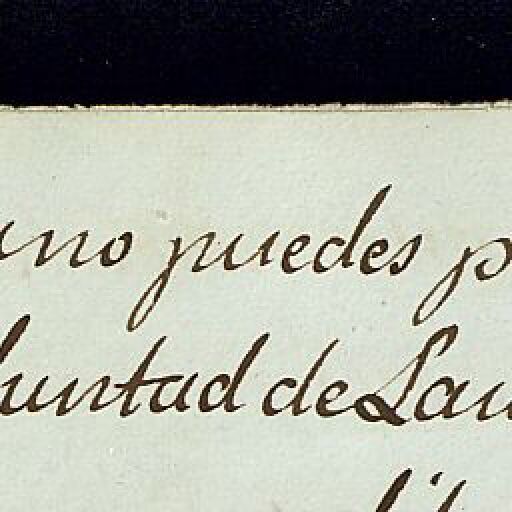 uno puedes p
luntad de Lau